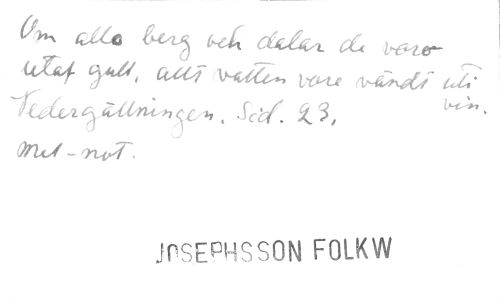 Om alla berg och dalar de voro
utaf gull, allt vatten vore vändt uti
vin.
Vedergällningen. Sid. 23.
Mel-not.
JOSEPHSSON FOLKW